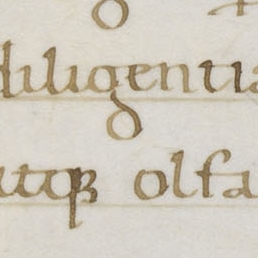 diligentia
atqꝫ olfa